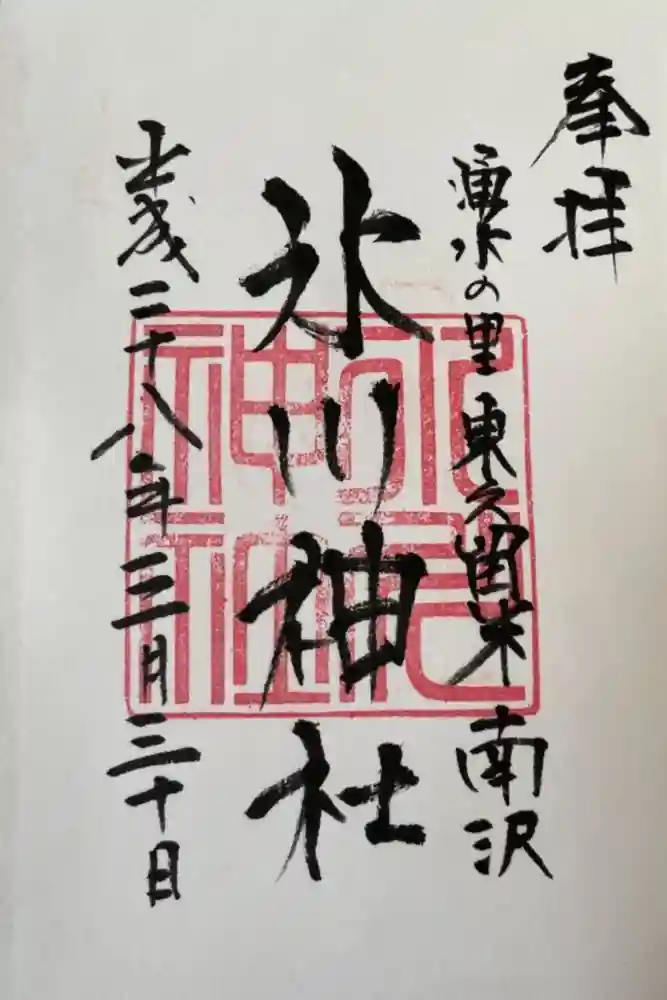 奉拝
湧水の里 東久留米 南沢
氷川神社
平成二十八年三月三十日